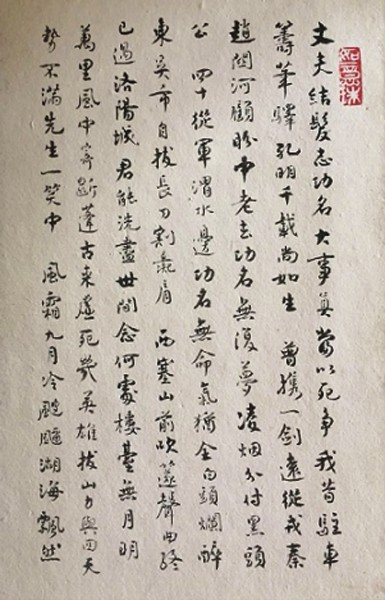 丈夫結髮志功名大事真當以死爭我昔駐車
籌筆驛孔明千載尚如生 曾攜一劍遠從戎秦
趙關河顧盼中老去功名無復夢凌烟分付黑頭
公 四十從軍渭水邊功名無命氣猶全白頭爛醉
東吳市自拔長刀割彘肩 西塞山前吹篴聲曲終
已過洛陽城君能洗盡世間念何處樓臺無月明
萬里風中寄斷蓬古來虛死幾英雄拔山力與回天
勢不滿先生一笑中 風霜九月冷颼颼湖海飄然